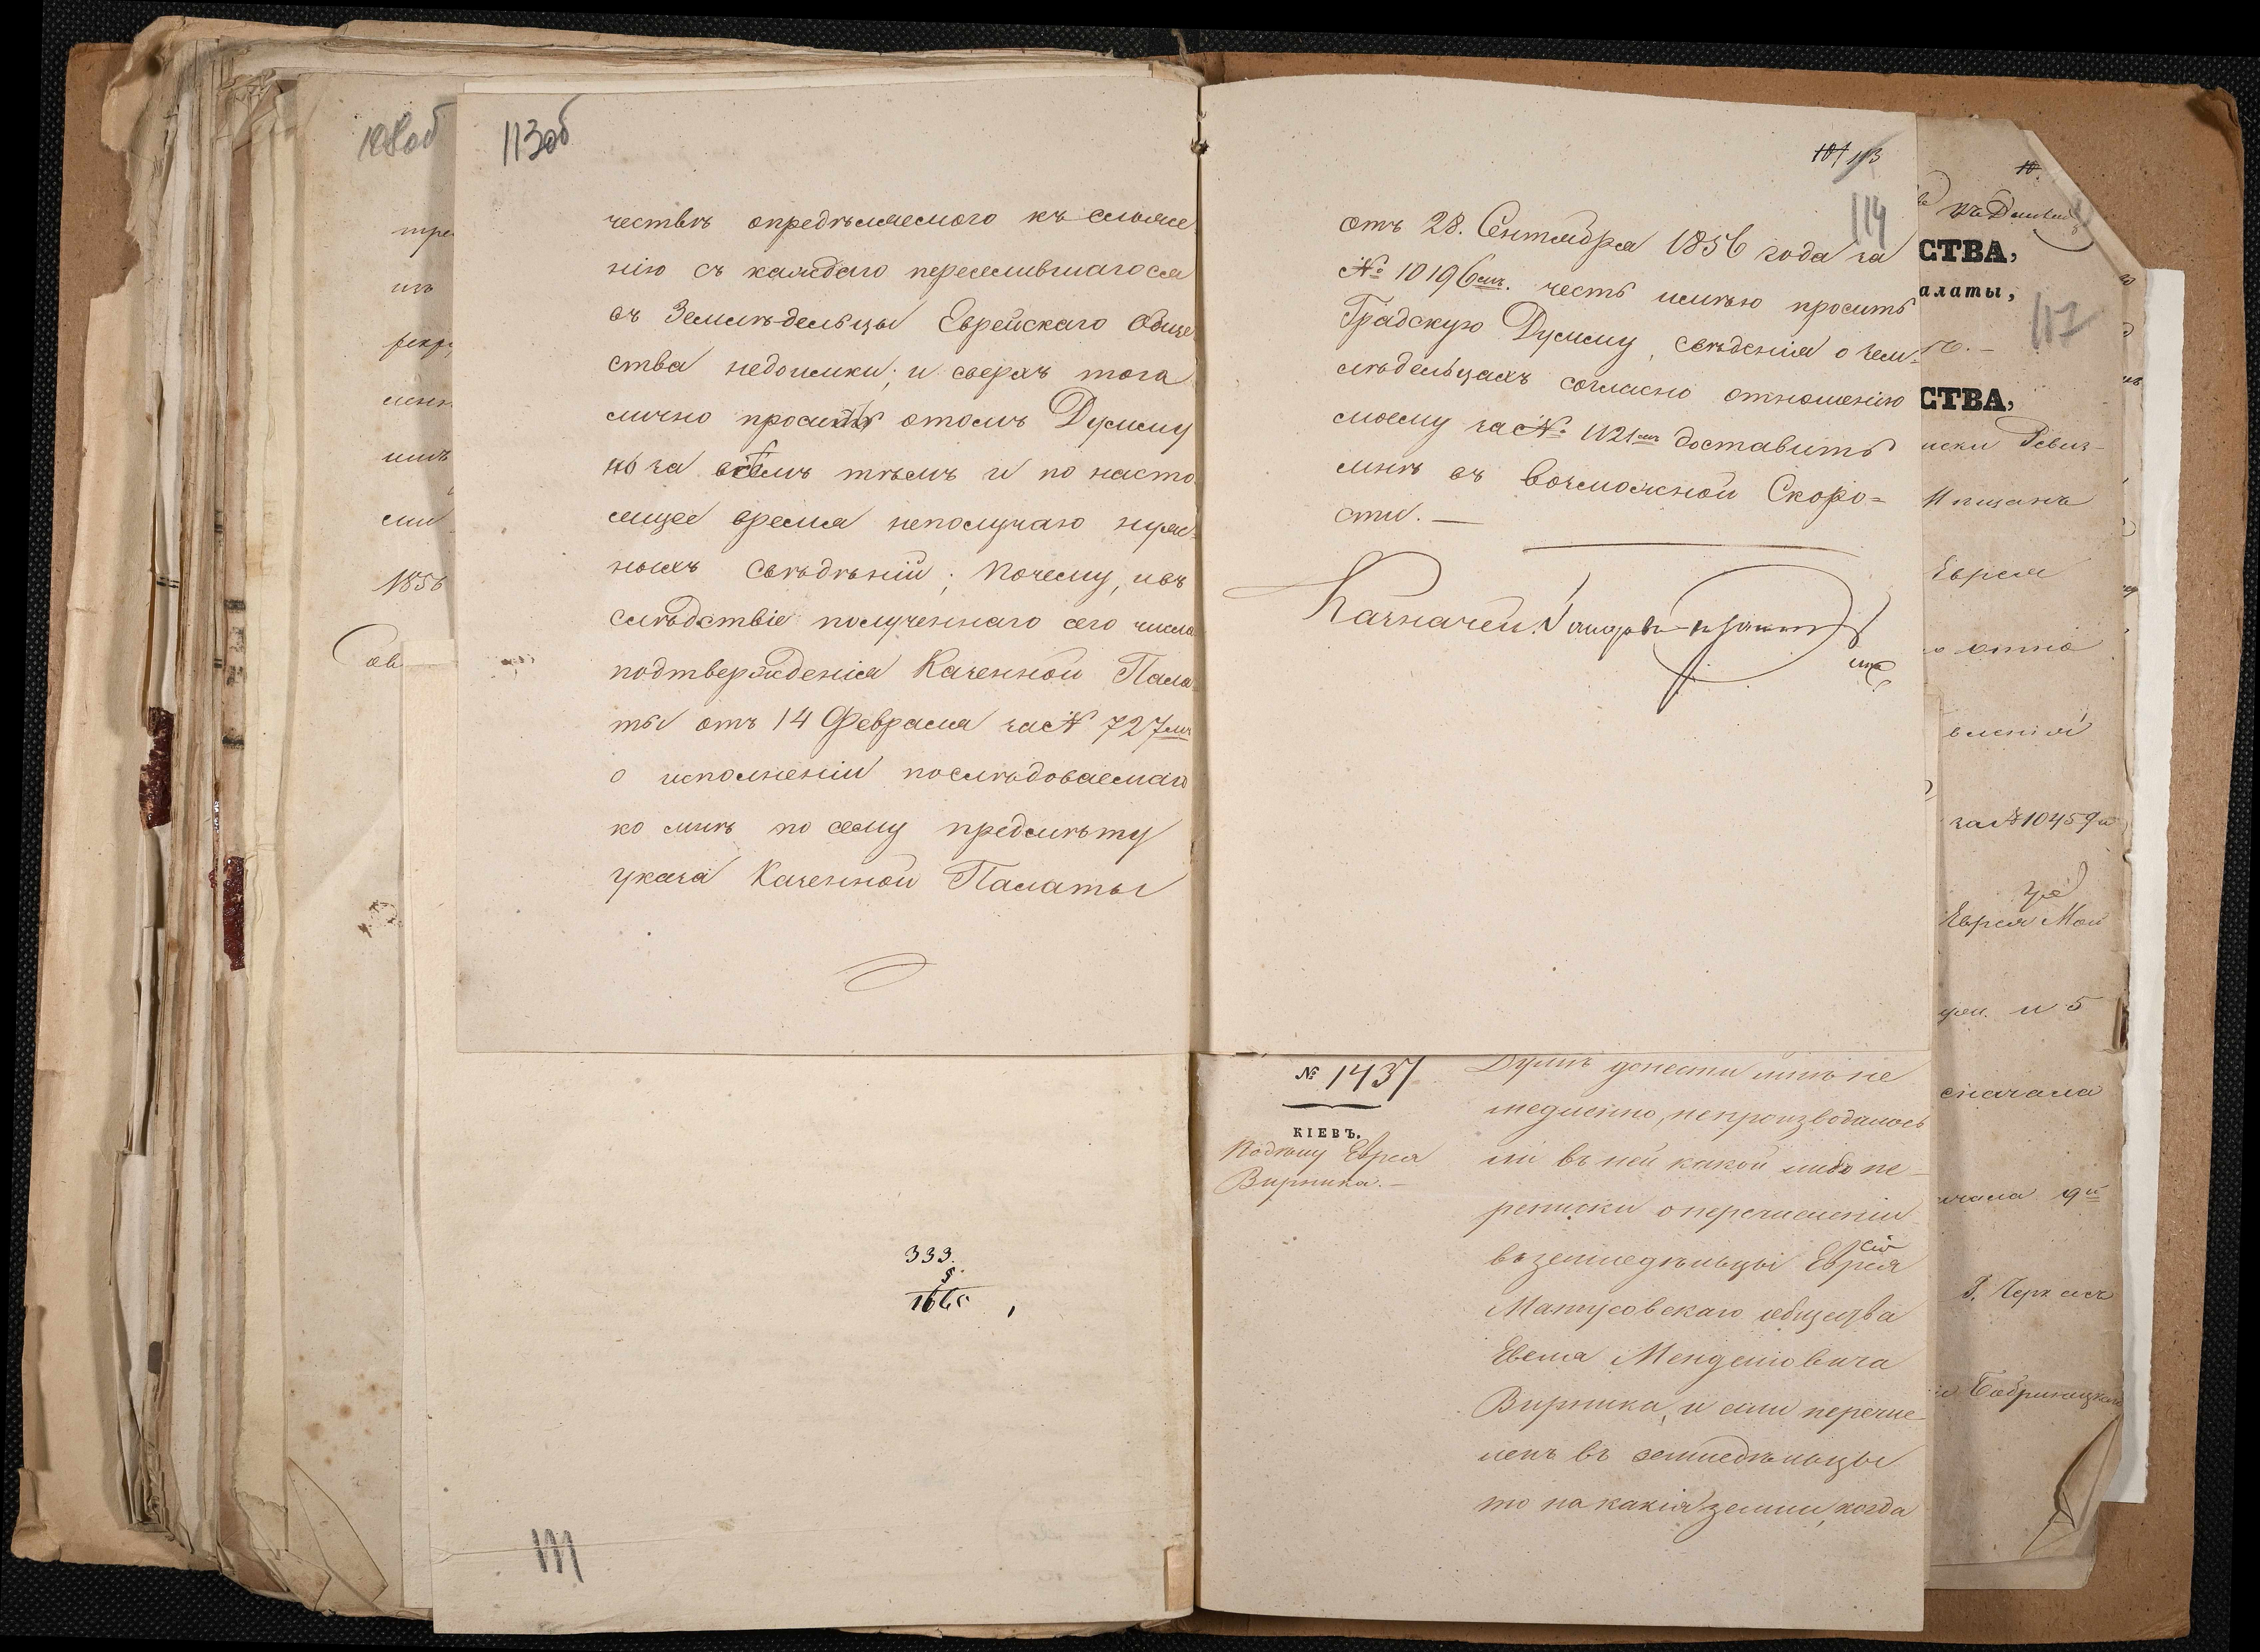 108об
тре
изъ
рекр
ими
1856
113об
чествѣ опредѣляемого къ сложе
нію съ каждаго переселившагося
въ Земледѣльцы Еврейскаго Обще
ства недоимки; и сверхъ того
лично просилъ отомъ Думму
но за всемъ тѣмъ и по насто
ящее время неполучаю нуж
ныхъ свѣдѣній; Почему, ивъ
слѣдствіе полученнаго сего числа
подтвержденія Казенной Пала
ты отъ 14 Февраля за№ 727мъ
о исполненіи послѣдоваемаго
ко мнѣ по сему предмѣту
указа Казенной Палаты
333.
5.
1665
111
101 113
114
отъ 28. Сентября 1856 года за
№ 10196мъ. честь имѣю просить
Градскую Думму, свѣденія о зем-
лѣдельцахъ согласно отношенію
моему за№ 1121мъ доставить
мнѣ въ возможной Скоро=
сти. —
Казначей
№ 1437
КІЕВЪ.
Подѣлу Еврея
Вирника. —
Думѣ донести мнѣ не
медленно, непроизводилось
ли въ ней какой либо пе-
реписки оперечисленіи
въземледѣльцы Еврея
Матусовскаго общества
Менделовича
Вирника, и если перечис
ленъ въ земледѣльцы
то на какія земли, когда
СТВА,
алаты,
117
СТВА,
иски Ревиз-
Мѣщанъ
Еврея
вленія
за№10459
Еврея Мои
и 5
сначала
Г. Черкасъ
Бобринецкаго